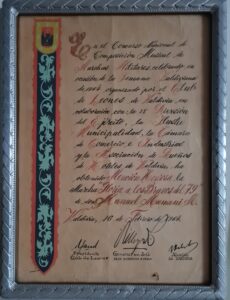 En el Concurso Nacional de
Composición Musical de
Marchas Militares, celebrado en
ocasión de la Semana Valdiviana
de organizado por el Club
de Leones de Valdivia, en
colaboración con la División
de Ejército, la Ilustre
Municipalidad, la Cámara
de Comercio e Industrias
y la Asociación de Dueños
de Hoteles de Valdivia, ha
obtenido Mención Honrosa la
Marcha los del 79
de don Manuel Mamani M.
Valdivia, 10 de Febrero de
Presidente
Club de Leones